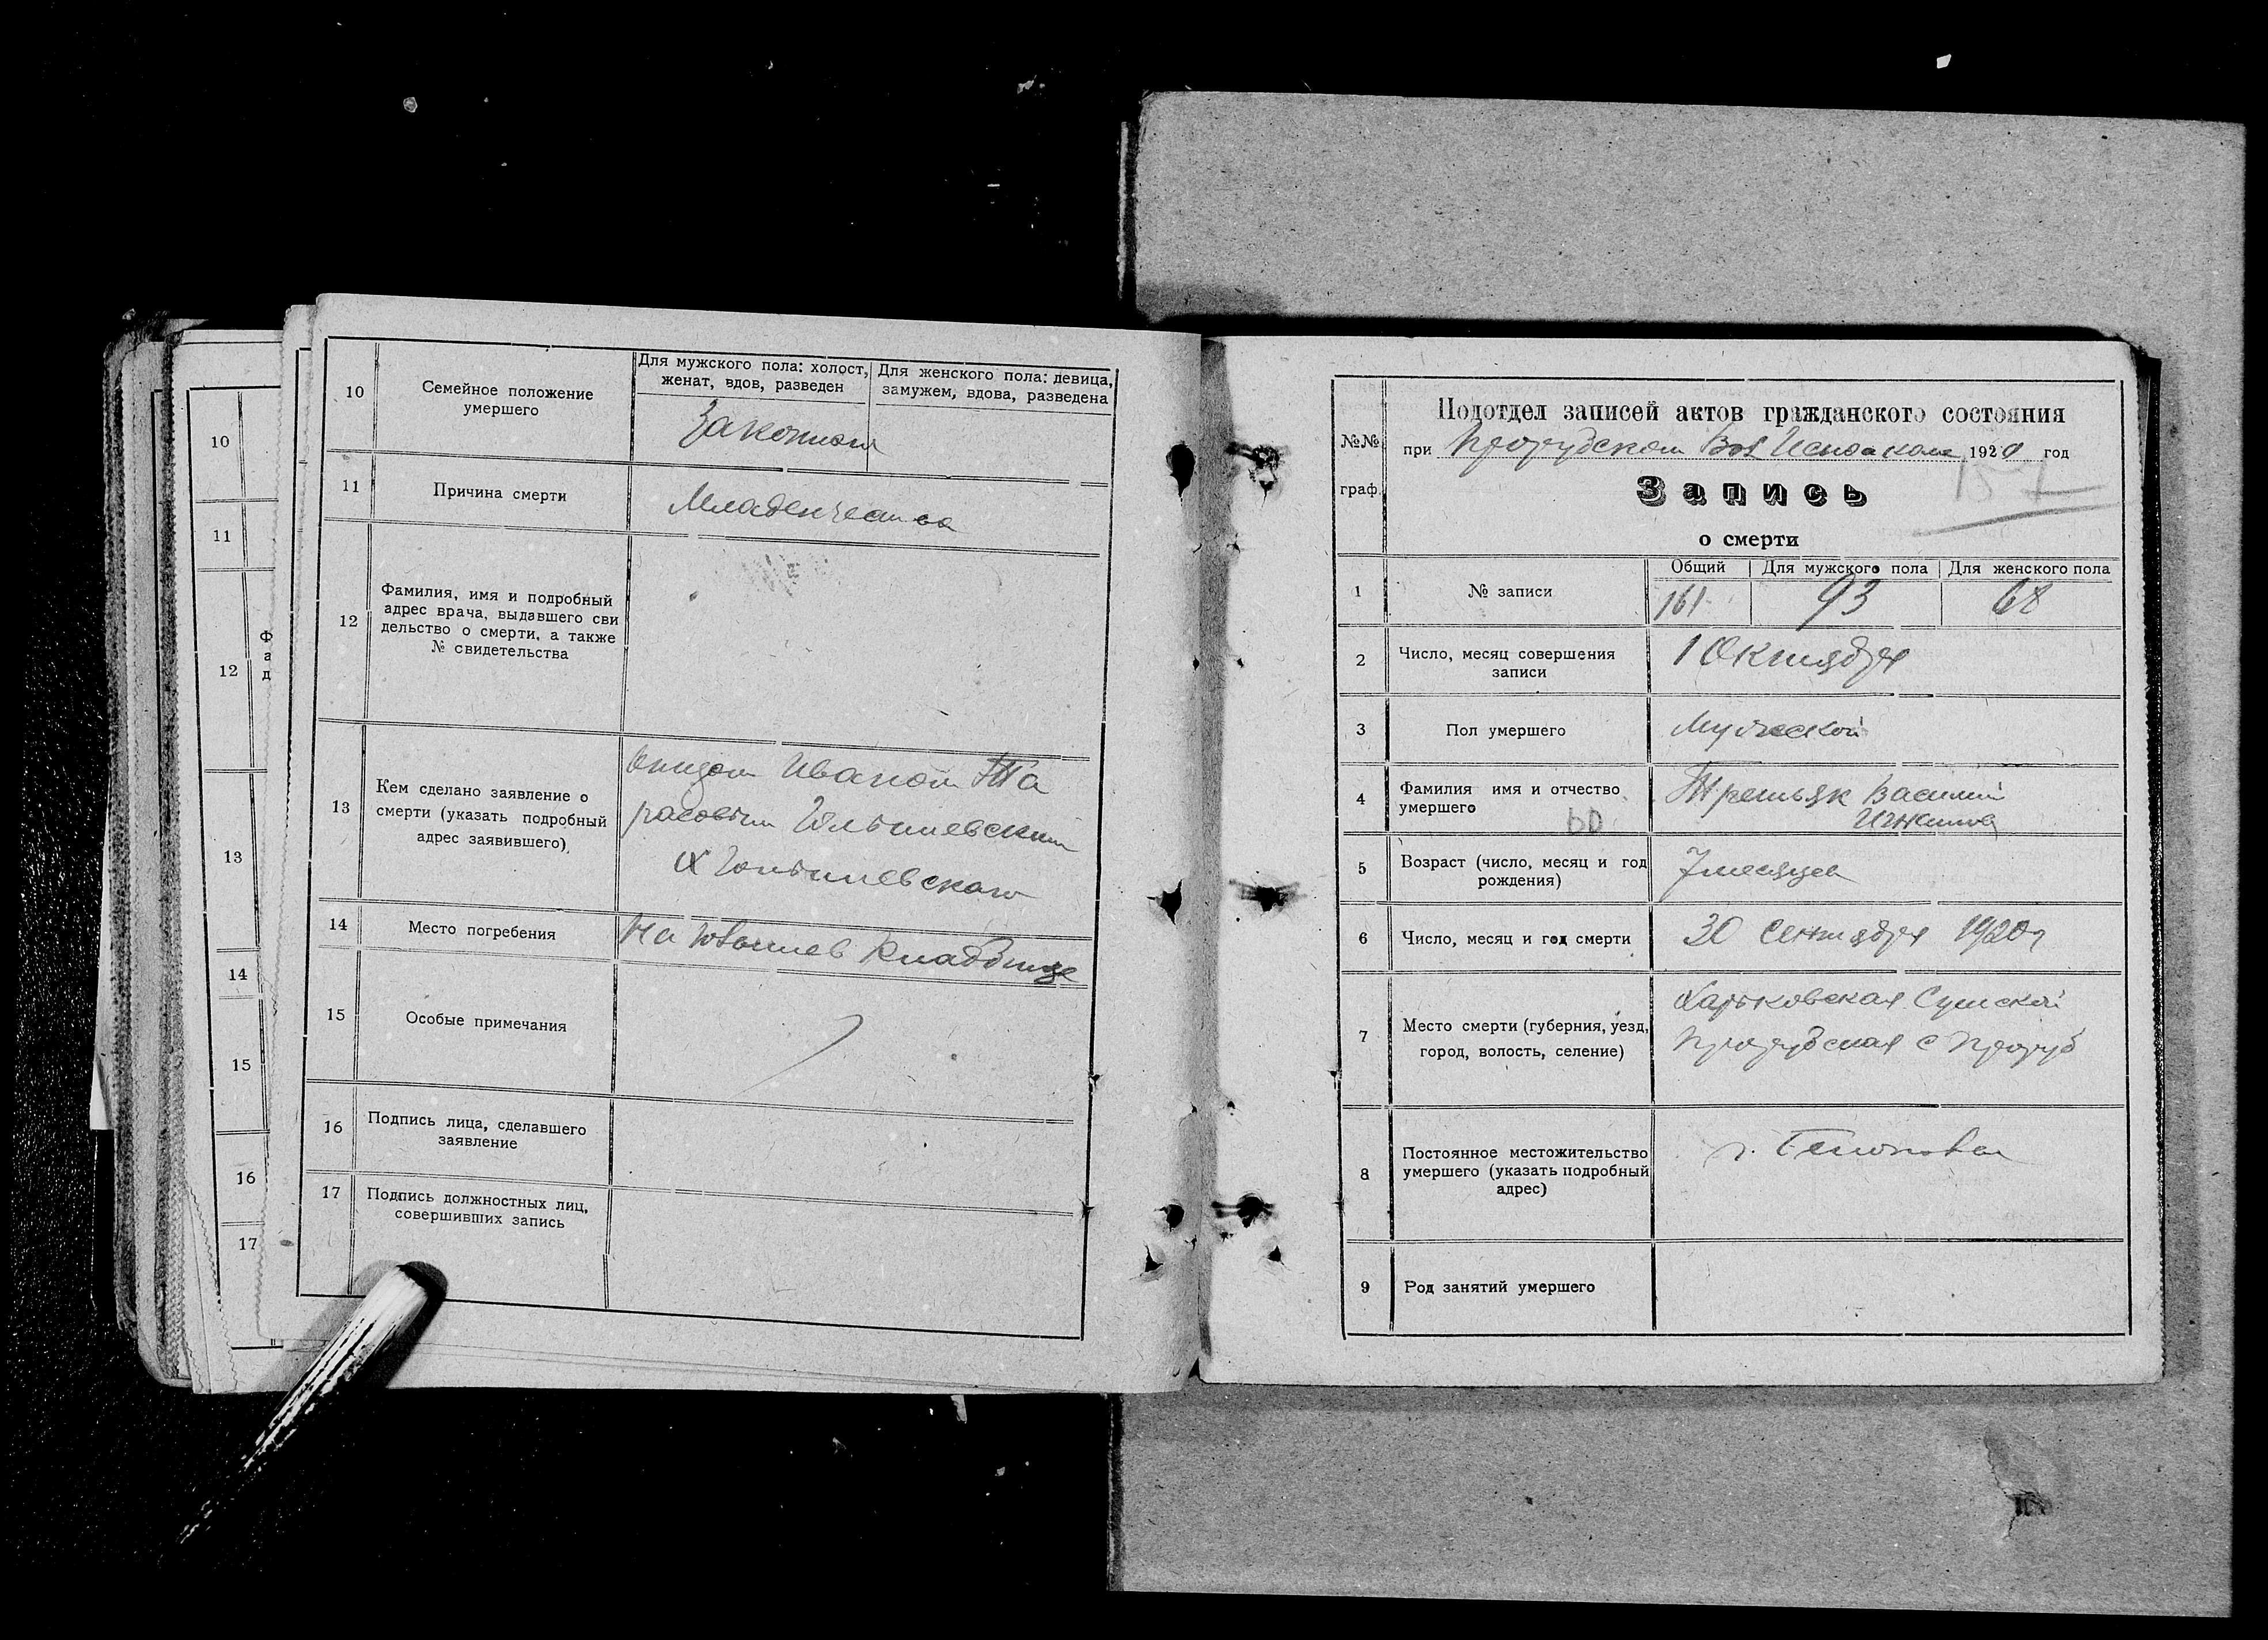 10
11
12
Ф
а
д
13
14
15
16
17
10
Семейное положение
умершего
Для мужского пола: холост,
женат, вдов, разведен
Для женского пола: девица,
замужем, вдова, разведена
11
Причина смерти
12
Фамилия, имя и подробный
адрес врача, выдавшего сви
дельство о смерти, а также
№ свидетельства
13
Кем сделано заявление о
смерти (указать подробный
адрес заявившего)
Иваном Та
расовым
14
Место погребения
На
15
Особые примечания
16
Подпись лица, сделавшего
заявление
17
Подпись должностных лиц,
совершивших запись
№№
граф.
Подотдел записей актов гражданского состояния
при 1920 год
Запись
157
о смерти
1
№ записи
Общий
Для мужского пола
Для женского пола
161
93
68
2
Число, месяц совершения
записи
1 Октября
3
Пол умершего
Мужской
4
Фамилия имя и отчество
умершего
Третьяк Василий
5
Возраст (число, месяц и год
рождения)
7 месяцев
6
Число, месяц и год смерти
30 Сентября 1920 г
7
Место смерти (губерния, уезд,
город, волость, селение)
Харьковская Сумской
8
Постоянное местожительство
умершего (указать подробный
адрес)
9
Род занятий умершего